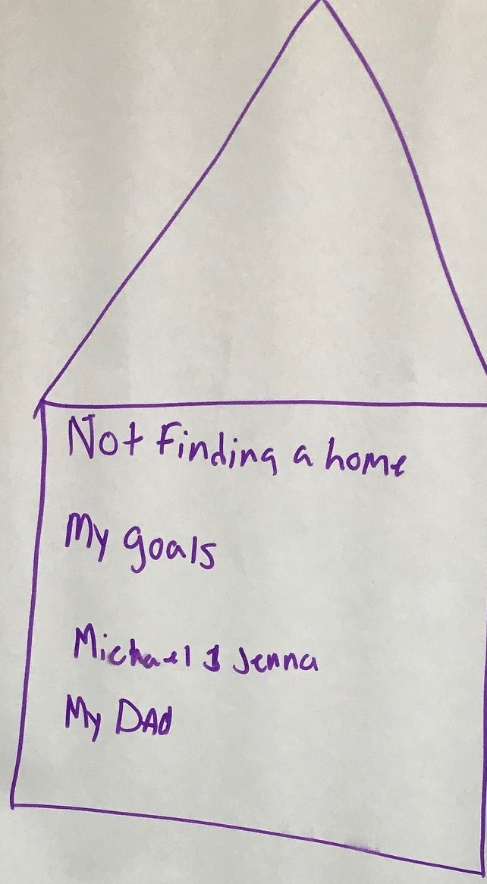 Not Finding a home
My goals
Michael & Jenna
My DAd